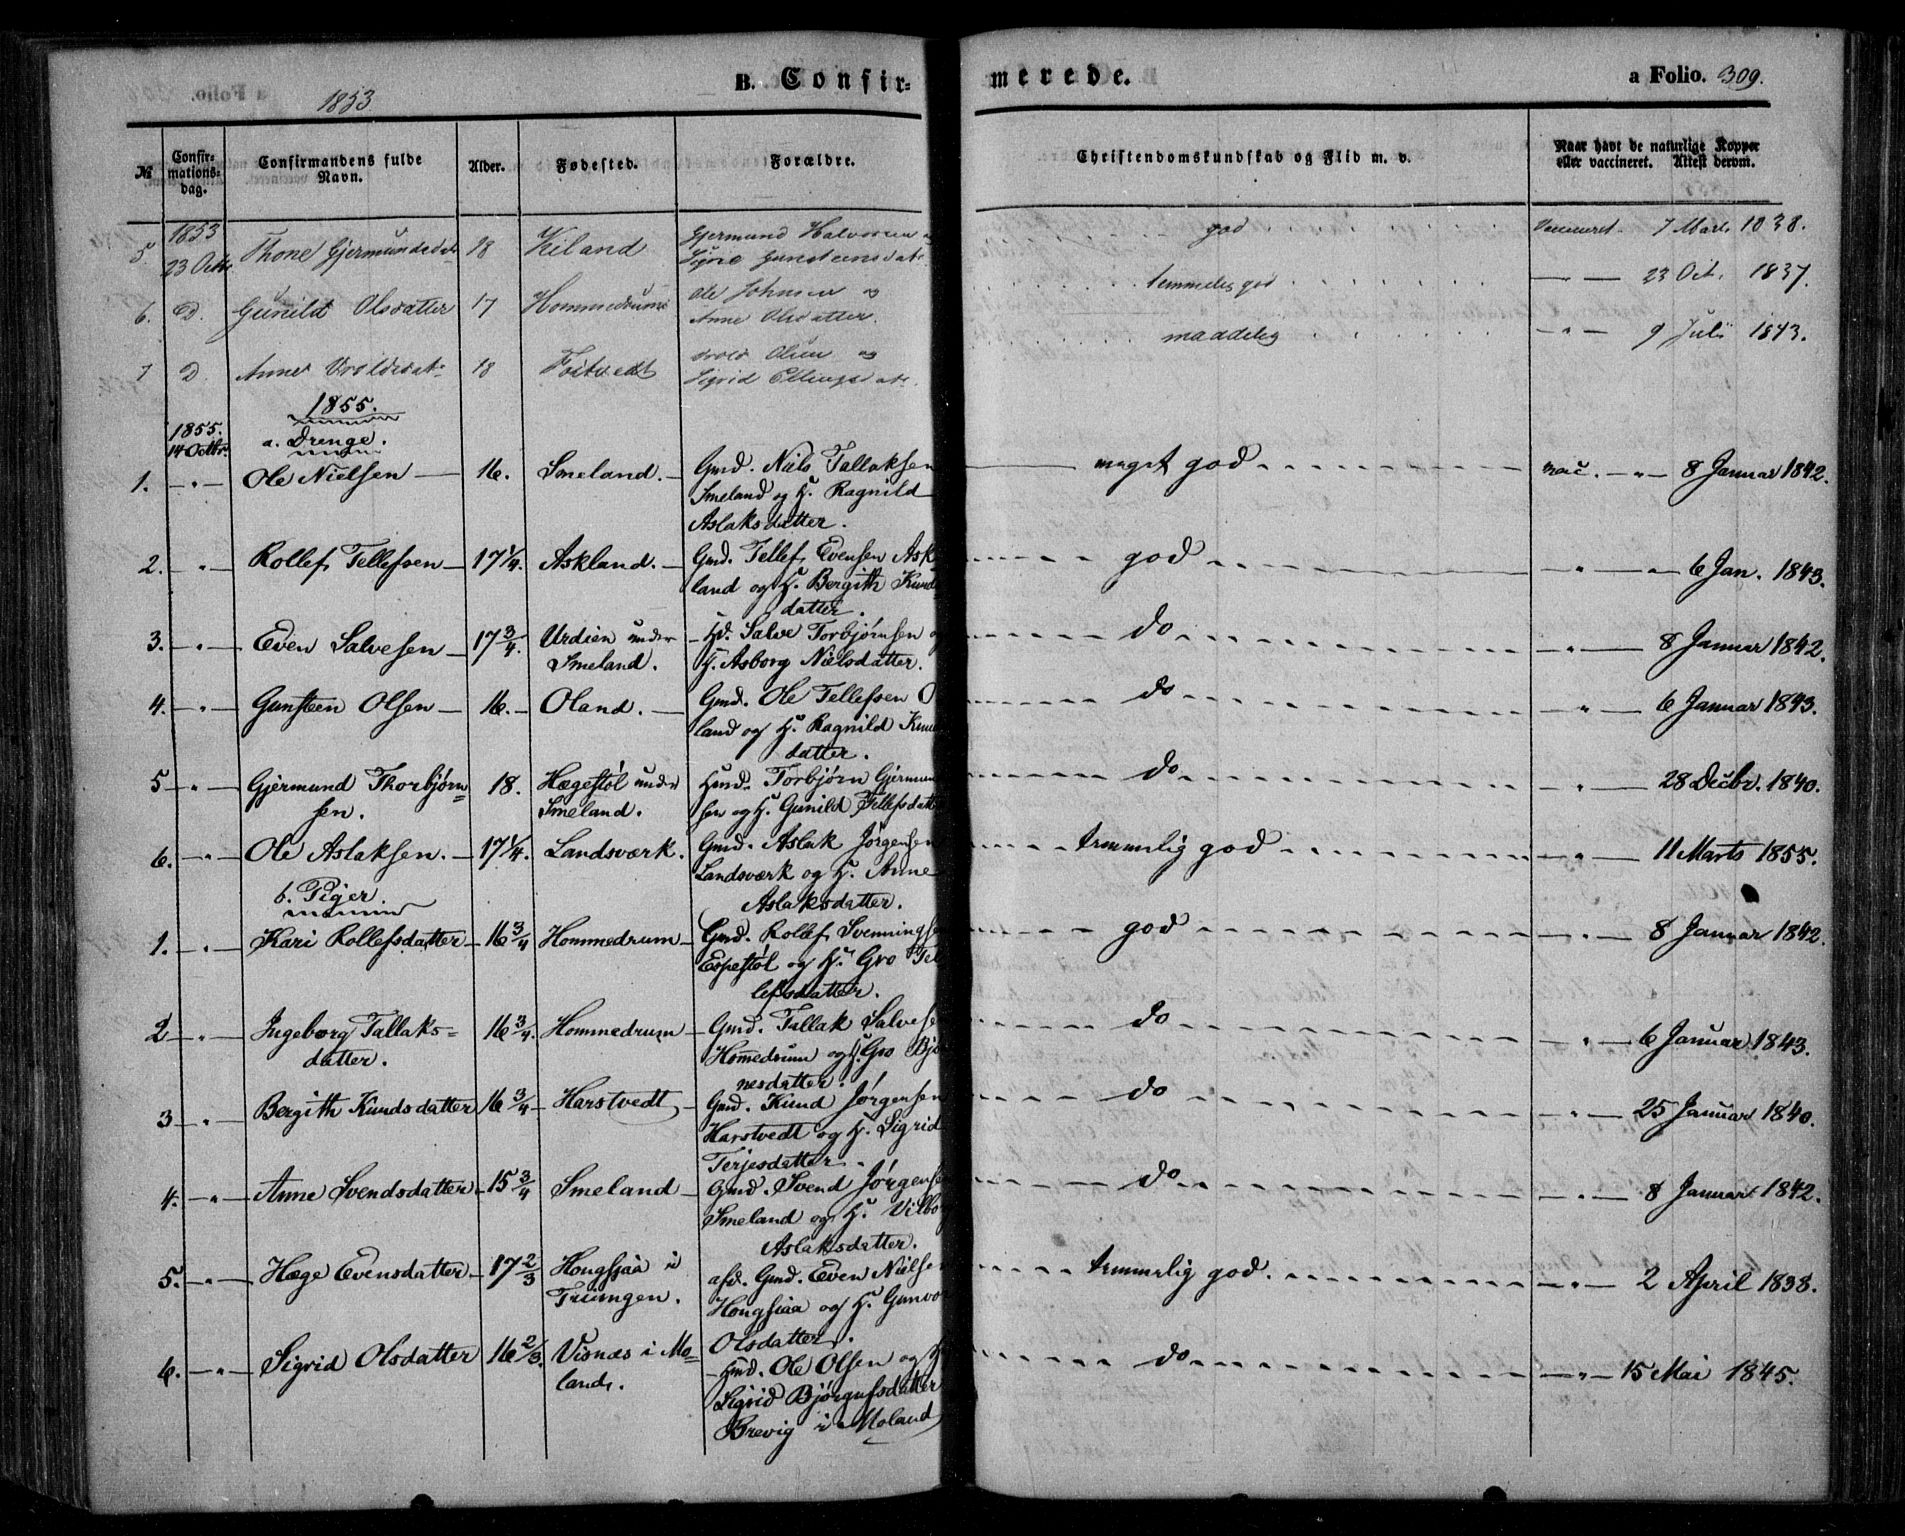 B. Confir-
merede.
a Folio. 309.
1853
No
Confir-
mations-
dag.
Confirmandens fulde
Navn.
Alder.
Fødested.
Forældre.
Christendomskundskab og Flid m. v.
Naar havt de naturlige Kopper
eller vaccineret. Attest derom.
1853
5. 23 Octr. Thone Gjermundsdatr 18 Kiland Gjermund Halvorsen og
Signe Gunsteensdatr. god Vaccineret. 7 Marts 1838.
6. D. Gunild Olsdatter 17 Hommedrum Ole Johnsen og
Anne Olsdatter. temmelig god — — 23 Oct. 1837.
7 D Anne Vroldsdatr 18 Foitvedt Vrold Olsen og
Sigrid Ellingsdatr. maadelig — " — 9 Juli 1843.
1855.
1855.
14 Octbr.
a. Drenge.
1. — " — Ole Nielsen — 16. Smeland. — Gmd. Niels Tallaksen
Smeland og H. Ragnild
Aslaksdatter. meget god vac. — " — 8 Januar 1842.
2. — " — Rollef Tellefsen — 17 1/4. Askland. — Gmd. Tellef Evensen Ask
land og H. Bergith Knuds
datter. god " — " — 6 Jan. 1843.
3. — " — Even Salvesen — 17 3/4. Urdien under
Smeland. — Hd. Salve Torbjørnsen og
H. Asborg Nielsdatter. do — " — 8 Januar 1842.
4. — " — Gunsteen Olsen — 16. — Oland. — Gmd. Ole Tellefsen O
land og H. Ragnild Knuds
datter. do " — 6 Januar 1843.
5 — " — Gjermund Thorbjørn=
sen. 18. Hægestøl under
Smeland. Hmd. Torbjørn Gjermund
sen og H. Gunild Tellefsdatter do — " — 28 Decbr. 1840.
6. — " — Ole Aslaksen. — 17 1/4. Landsværk. Gmd. Aslak Jørgensen
Landsværk og H. Anne
Aslaksdatter. temmelig god — " — 11 Marts 1855.
b. Piger.
1. — " — Kari Rollefsdatter — 16 3/4 Hommedrum — Gmd. Rollef Svenningsen
Espestøl og H. Gro Tel
lefsdatter. god — " — 8 Januar 1842.
2 — " — Ingeborg Tallaks=
datter. 16 3/4. Hommedrum — Gmd. Tallak Salvesen
Homedrum og H. Gro Bjø
nesdatter. do — " — 6 Januar 1843.
3 — " — Bergith Knudsdatter 16 3/4 — Harstvedt — Gmd. Knud Jørgensen
Harstvedt og H. Sigrid
Terjesdatter. do " — 25 Januar 1840.
4. — " — Anne Svendsdatter — 15 3/4 Smeland — Gmd. Svend Jørgensen
Smeland og H. Vilbor
Aslaksdatter. do — " — 8 Januar 1842.
5. — " — Hæge Evensdatter — 17 2/3 Hongsjaa i
Triungen. afd. Gmd. Even Nielsen
Hongsjaa og H. Gunvor
Olsdatter. temmelig god. — " — 2 April 1838.
6. — " — Sigrid Olsdatter 16 2/3. Visnæs i Mo-
land. — Hmd. Ole Olsen og H
Sigrid Bjørgufsdatter
Brevig i Moland do — " — 15 Mai 1845.